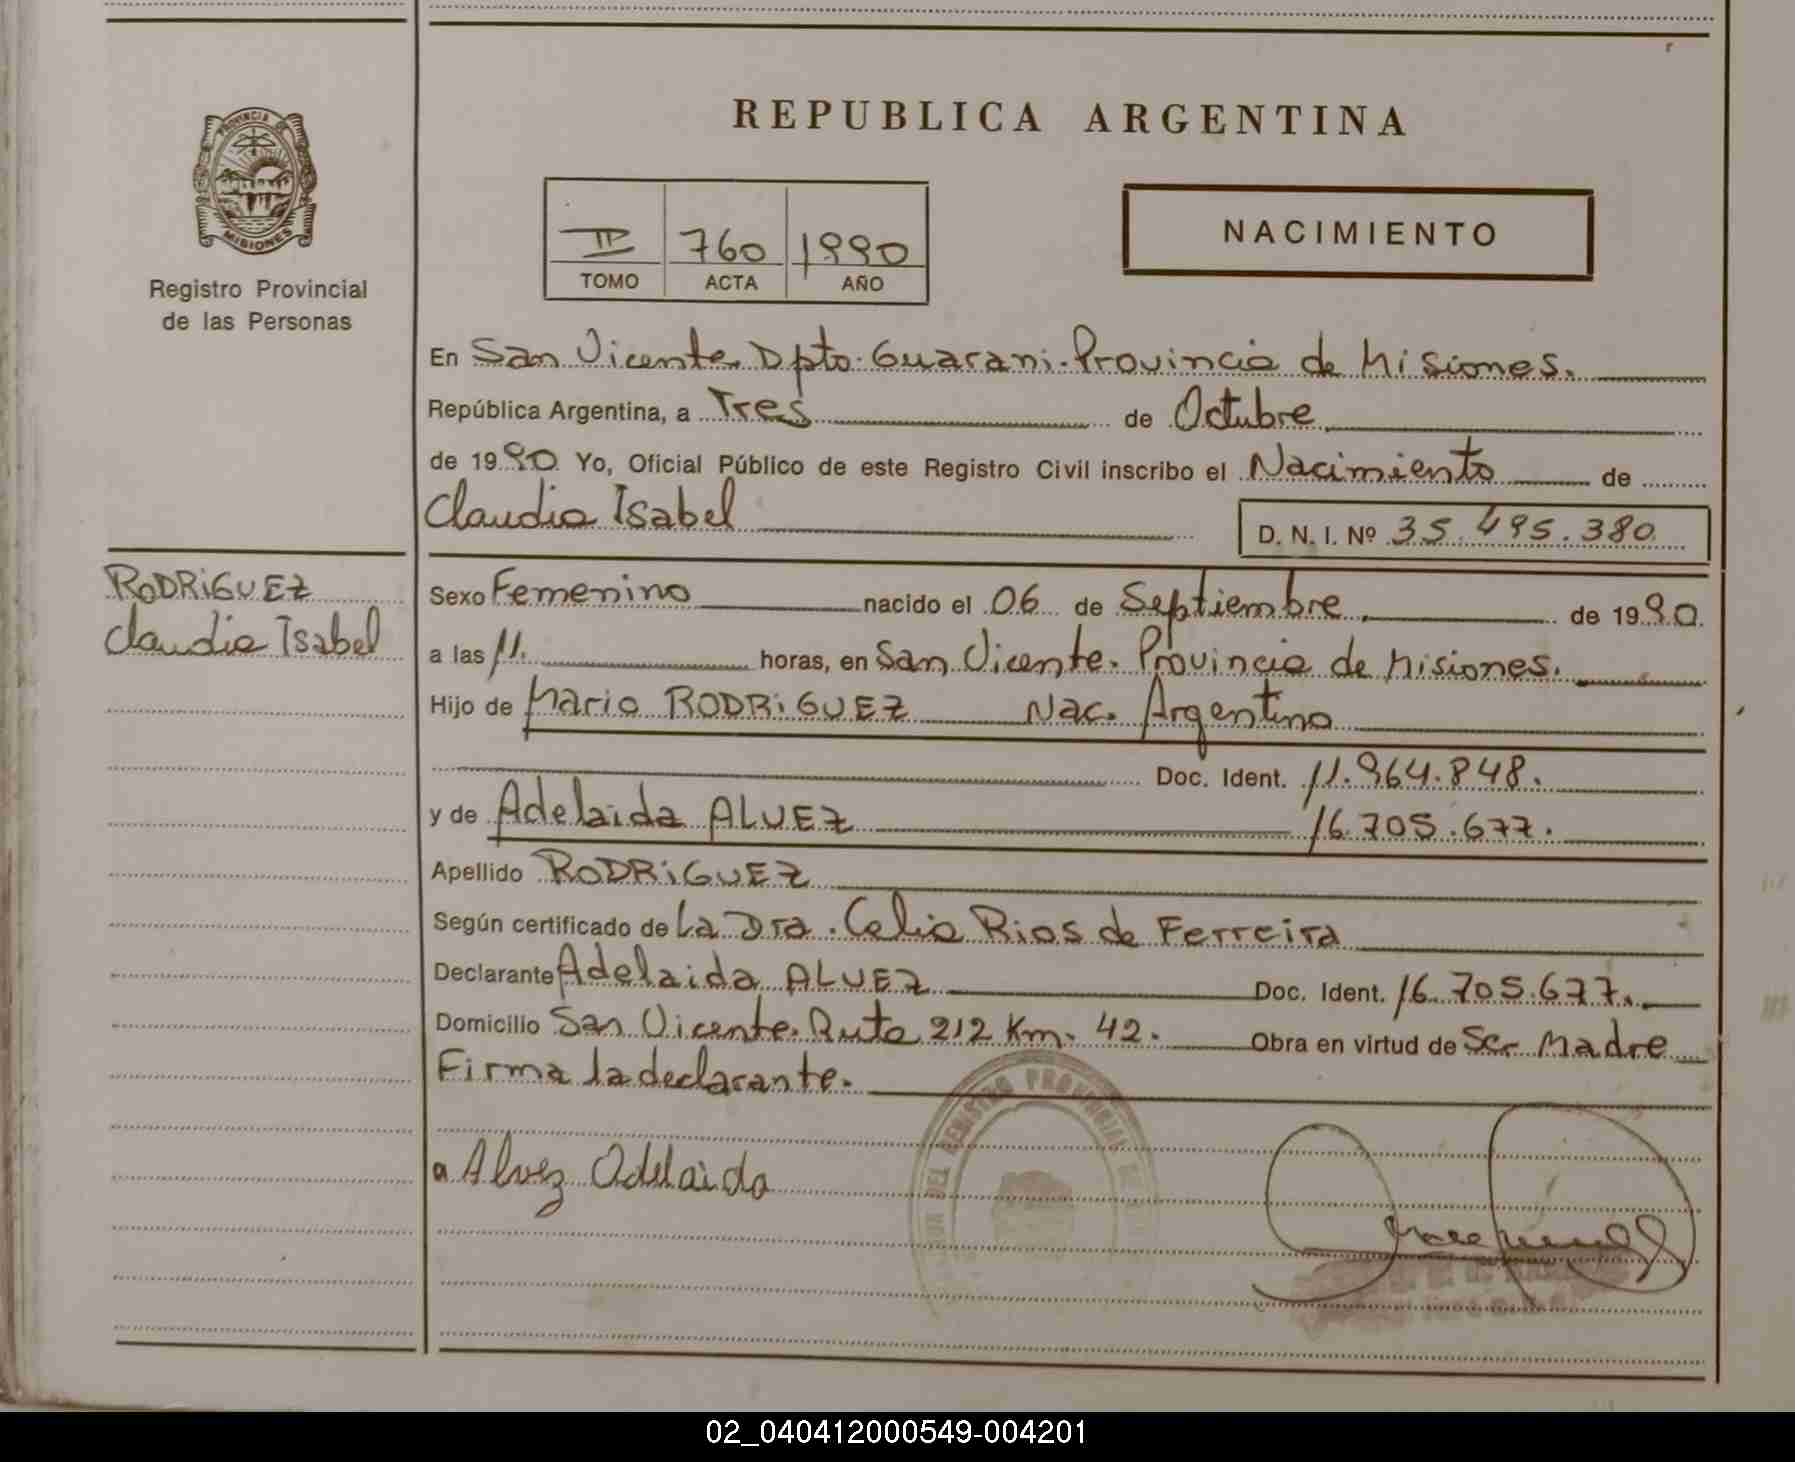 REPUBLICA ARGENTINA
PROVINCIA DE
MISIONES
Registro Provincial
de las Personas
II 760 1990
TOMO ACTA AÑO
NACIMIENTO
En San Vicente Dpto. Guarani. Provincia de Misiones.
República Argentina, a Tres de Octubre
de 1990 Yo, Oficial Público de este Registro Civil inscribo el Nacimiento de
Claudia Isabel
D. N. I. Nº 35.495.380
RODRIGUEZ
Claudia Isabel
Sexo Femenino nacido el 06 de Septiembre de 1990.
a las 11. horas, en San Vicente. Provincia de Misiones.
Hijo de Mario RODRIGUEZ Nac. Argentino
Doc. Ident. 11.964.848.
y de Adelaida ALVEZ 16.705.677.
Apellido RODRIGUEZ
Según certificado de La Dra. Celia Rios de Ferreira
Declarante Adelaida ALVEZ Doc. Ident. 16.705.677.
Domicilio San Vicente. Ruta 212 Km. 42. Obra en virtud de Ser Madre
Firma la declarante.
a Alvez Adelaida
DEL REGISTRO PROVINCIAL
02_040412000549-004201